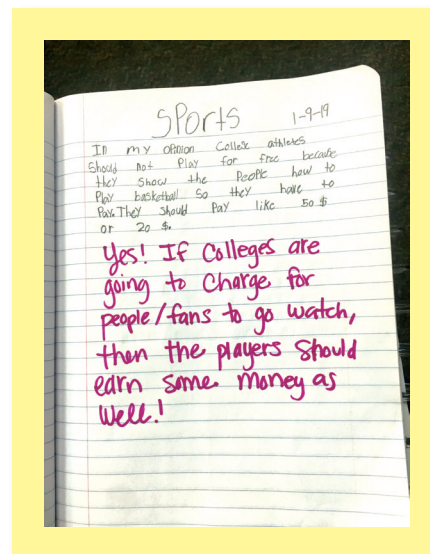 Sports 1-9-19
In my opinion College athletes
Should not Play for free because
they Show the People how to
Play basketball So they have to
Pay. They Should Pay like 50 $
or 20 $.
Yes! If Colleges are
going to Charge for
people/fans to go watch,
then the players Should
earn some money as
Well!